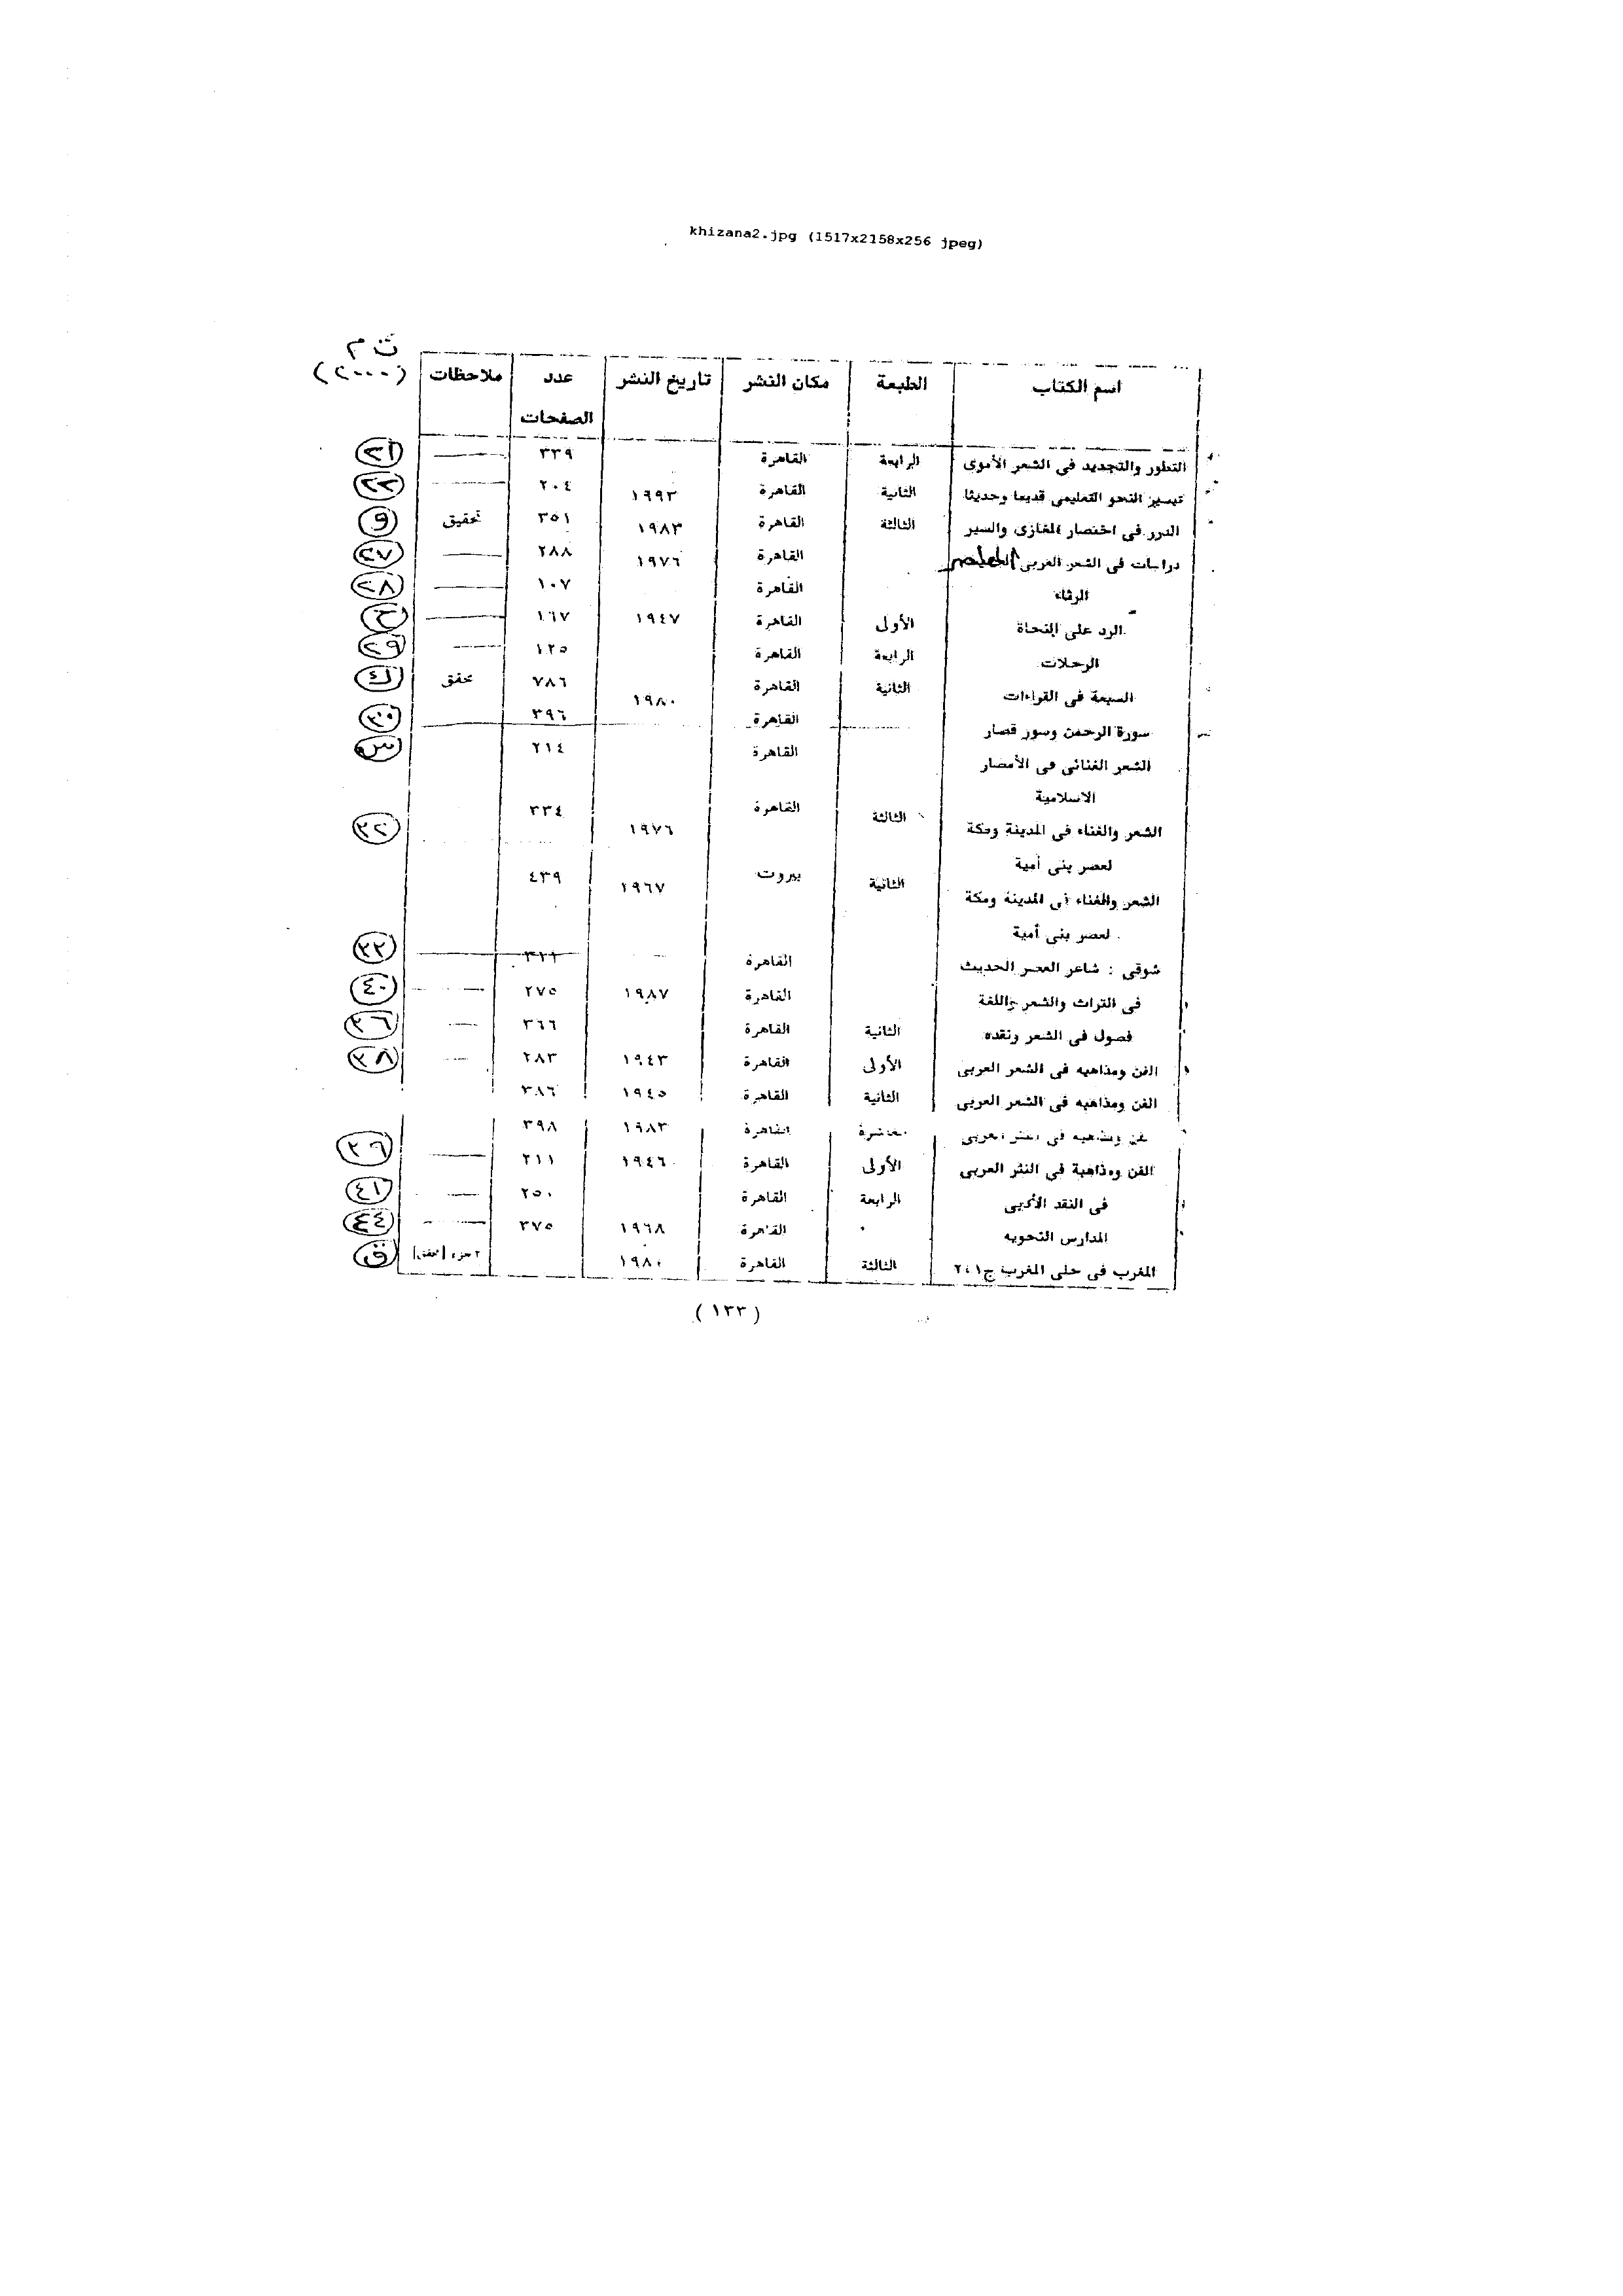 khizana2.jpg (1517x2158x256 jpeg)
ت م
(٢٠٠٠)
اسم الكتاب الطبعة مكان النشر تاريخ النشر عدد الصفحات ملاحظات
التطور والتجديد فى الشعر الأموى الرابعة القاهرة ٣٣٩ ——
تيسير النحو التعليمى قديما وحديثا الثانية القاهرة ١٩٩٣ ٢٠٤ ——
الدرر فى اختصار المغازى والسير الثالثة القاهرة ١٩٨٣ ٣٥١ تحقيق و
دراسات فى الشعر العربى المعاصر القاهرة ١٩٧٦ ٢٨٨ —— ٢٧
الرثاء القاهرة ١٠٧ —— ٢٨
الرد على النحاة الأولى القاهرة ١٩٤٧ ١٦٧ —— ح
الرحلات الرابعة القاهرة ١٢٥ —— ٢٩
السبعة فى القراءات الثانية القاهرة ١٩٨٠ ٧٨٦ محقق ك
سورة الرحمن وسور قصار القاهرة ٣٩٦ ٣٠
الشعر الغنائى فى الأمصار القاهرة ٢١٤
الاسلامية
الشعر والغناء فى المدينة ومكة الثالثة القاهرة ١٩٧٦ ٣٣٤ ٣٢
لعصر بنى أمية
الشعر والغناء فى المدينة ومكة الثانية بيروت ١٩٦٧ ٤٣٩
لعصر بنى أمية
شوقى : شاعر العصر الحديث القاهرة —— ٣٣
فى التراث والشعر واللغة القاهرة ١٩٨٧ ٢٧٥ —— ٤٠
فصول فى الشعر ونقده الثانية القاهرة ٣٦٦ —— ٣٦
الفن ومذاهبه فى الشعر العربى الأولى القاهرة ١٩٤٣ ٢٨٣ —— ٣٨
الفن ومذاهبه فى الشعر العربى الثانية القاهرة ١٩٤٥ ٣٨٦
القاهرة ١٩٨٣ ٣٩٨
الفن ومذاهبة فى النثر العربى الأولى القاهرة ١٩٤٦ ٢١١ —— ٣٩
فى النقد الأدبى الرابعة القاهرة ٢٥٠ —— ٤١
المدارس النحويه القاهرة ١٩٦٨ ٣٧٥ —— ٤٤
المغرب فى حلى المغرب ج١،٢ الثالثة القاهرة ١٩٨٠ ق
(١٣٣)